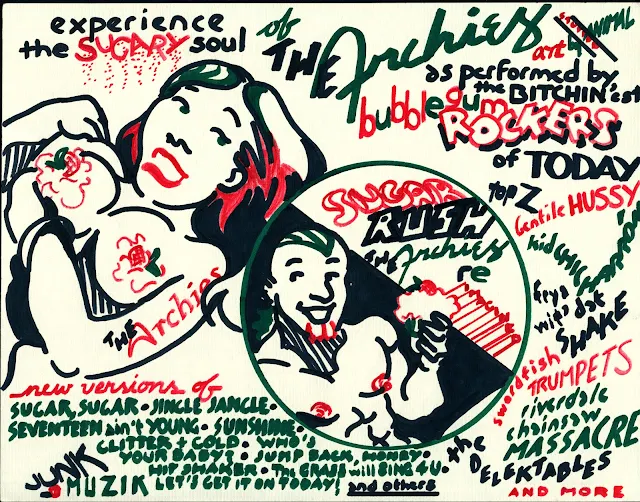 experience
the SUGARY soul
of
THE Archies
art 4 ANIMAL
as performed by
the BITCHIN'est
bubblegum
ROCKERS
of TODAY
TOP Z
Gentile HUSSY
kid CHIC
frys
with dat
SHAKE
swordfish
TRUMPETS
riverdale
chainsaw
MASSACRE
the
DELEKTABLES
AND MORE
SUGAR
RUSH
THE Archies
re
THE Archies
new versions of
SUGAR, SUGAR • JINGLE JANGLE •
SEVENTEEN ain't YOUNG • SUNSHINE •
GLITTER + GOLD • WHO'S
YOUR BABY? • JUMP BACK, MONEY •
HIP SHAKER • The GRASS will SING 4 U •
LET'S GET IT ON TODAY! and others
JUNK
MUZIK